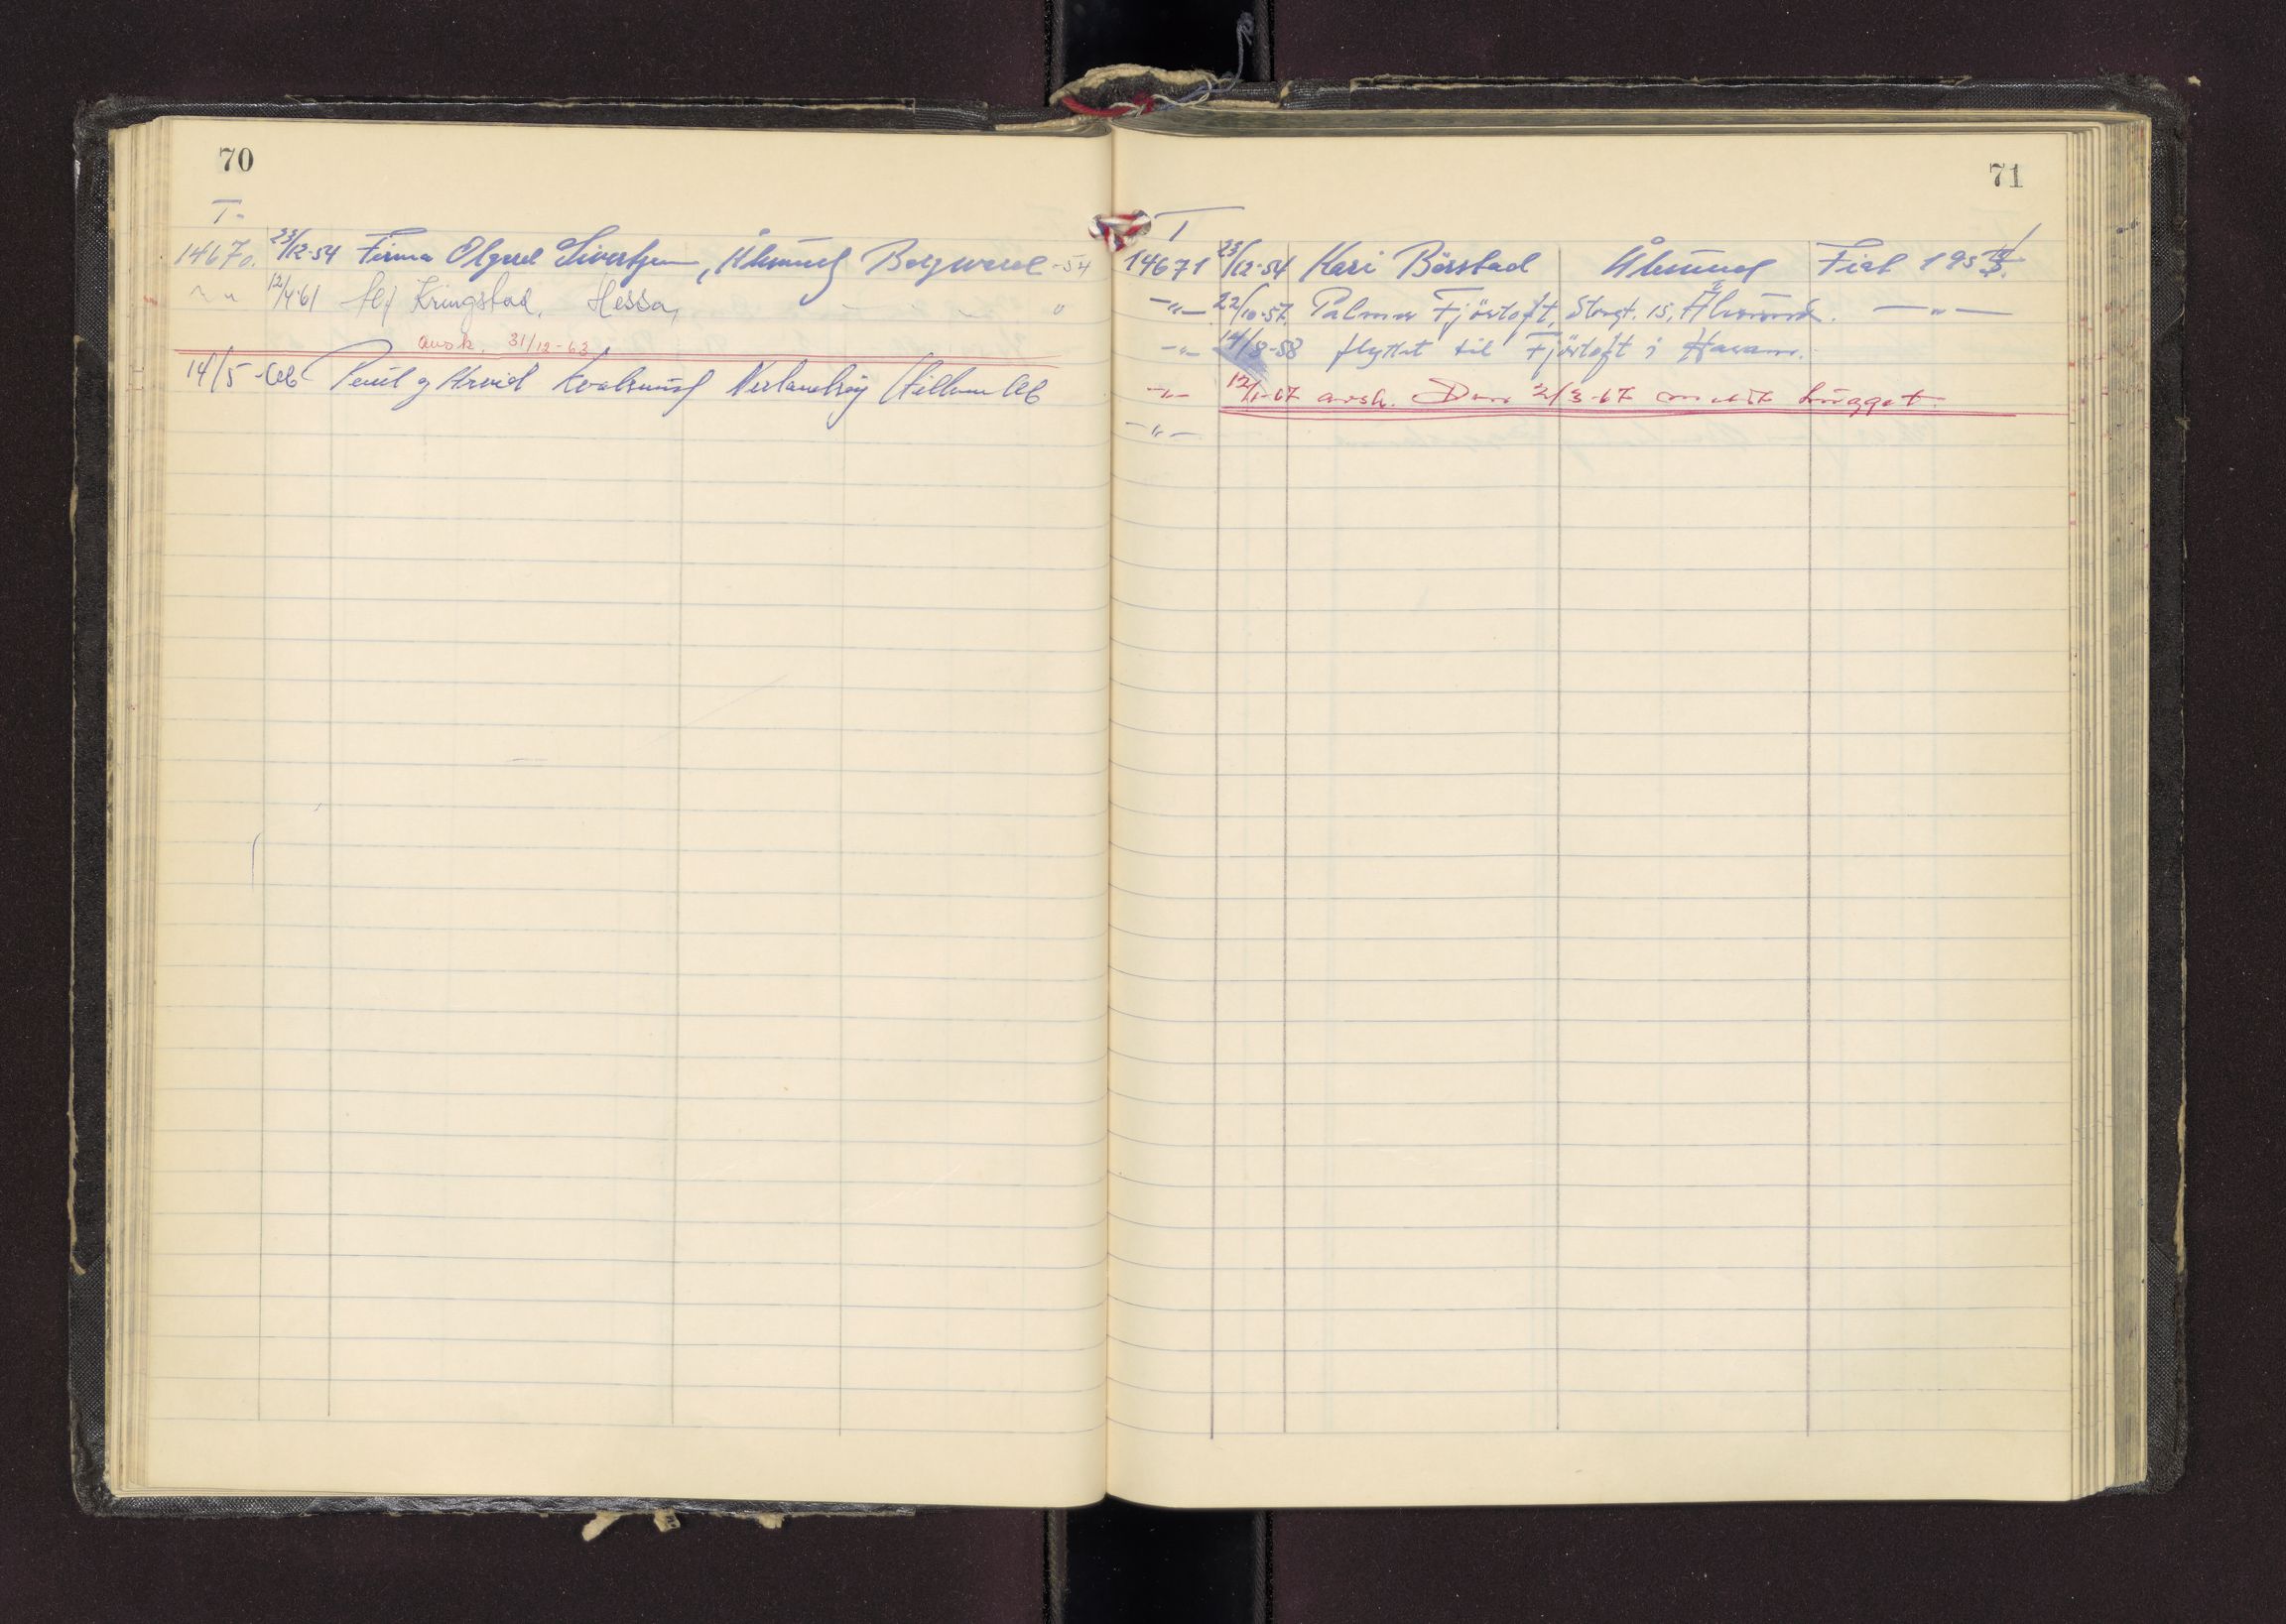 70
T.
14670. 23/12-54 Firma Olgard Sivertsen, Ålesund Borgward -54
" " 12/4-61 Alf Kringstad, Hessa, - - - "
avsk. 31/12-63
14/5 - Kvalsund Hillman
71
T
14671 23/12-54 Kari Börstad Ålesund Fiat 195
-"- 22/10-57. Palmer Fjörtoft, Storgt. 15, Ålesund. -"-
-"- 14/8-58 flyttet til Fjörtoft i Haram.
-"- 12/1-67 avsk. 2/3-67 hugget.
-"-